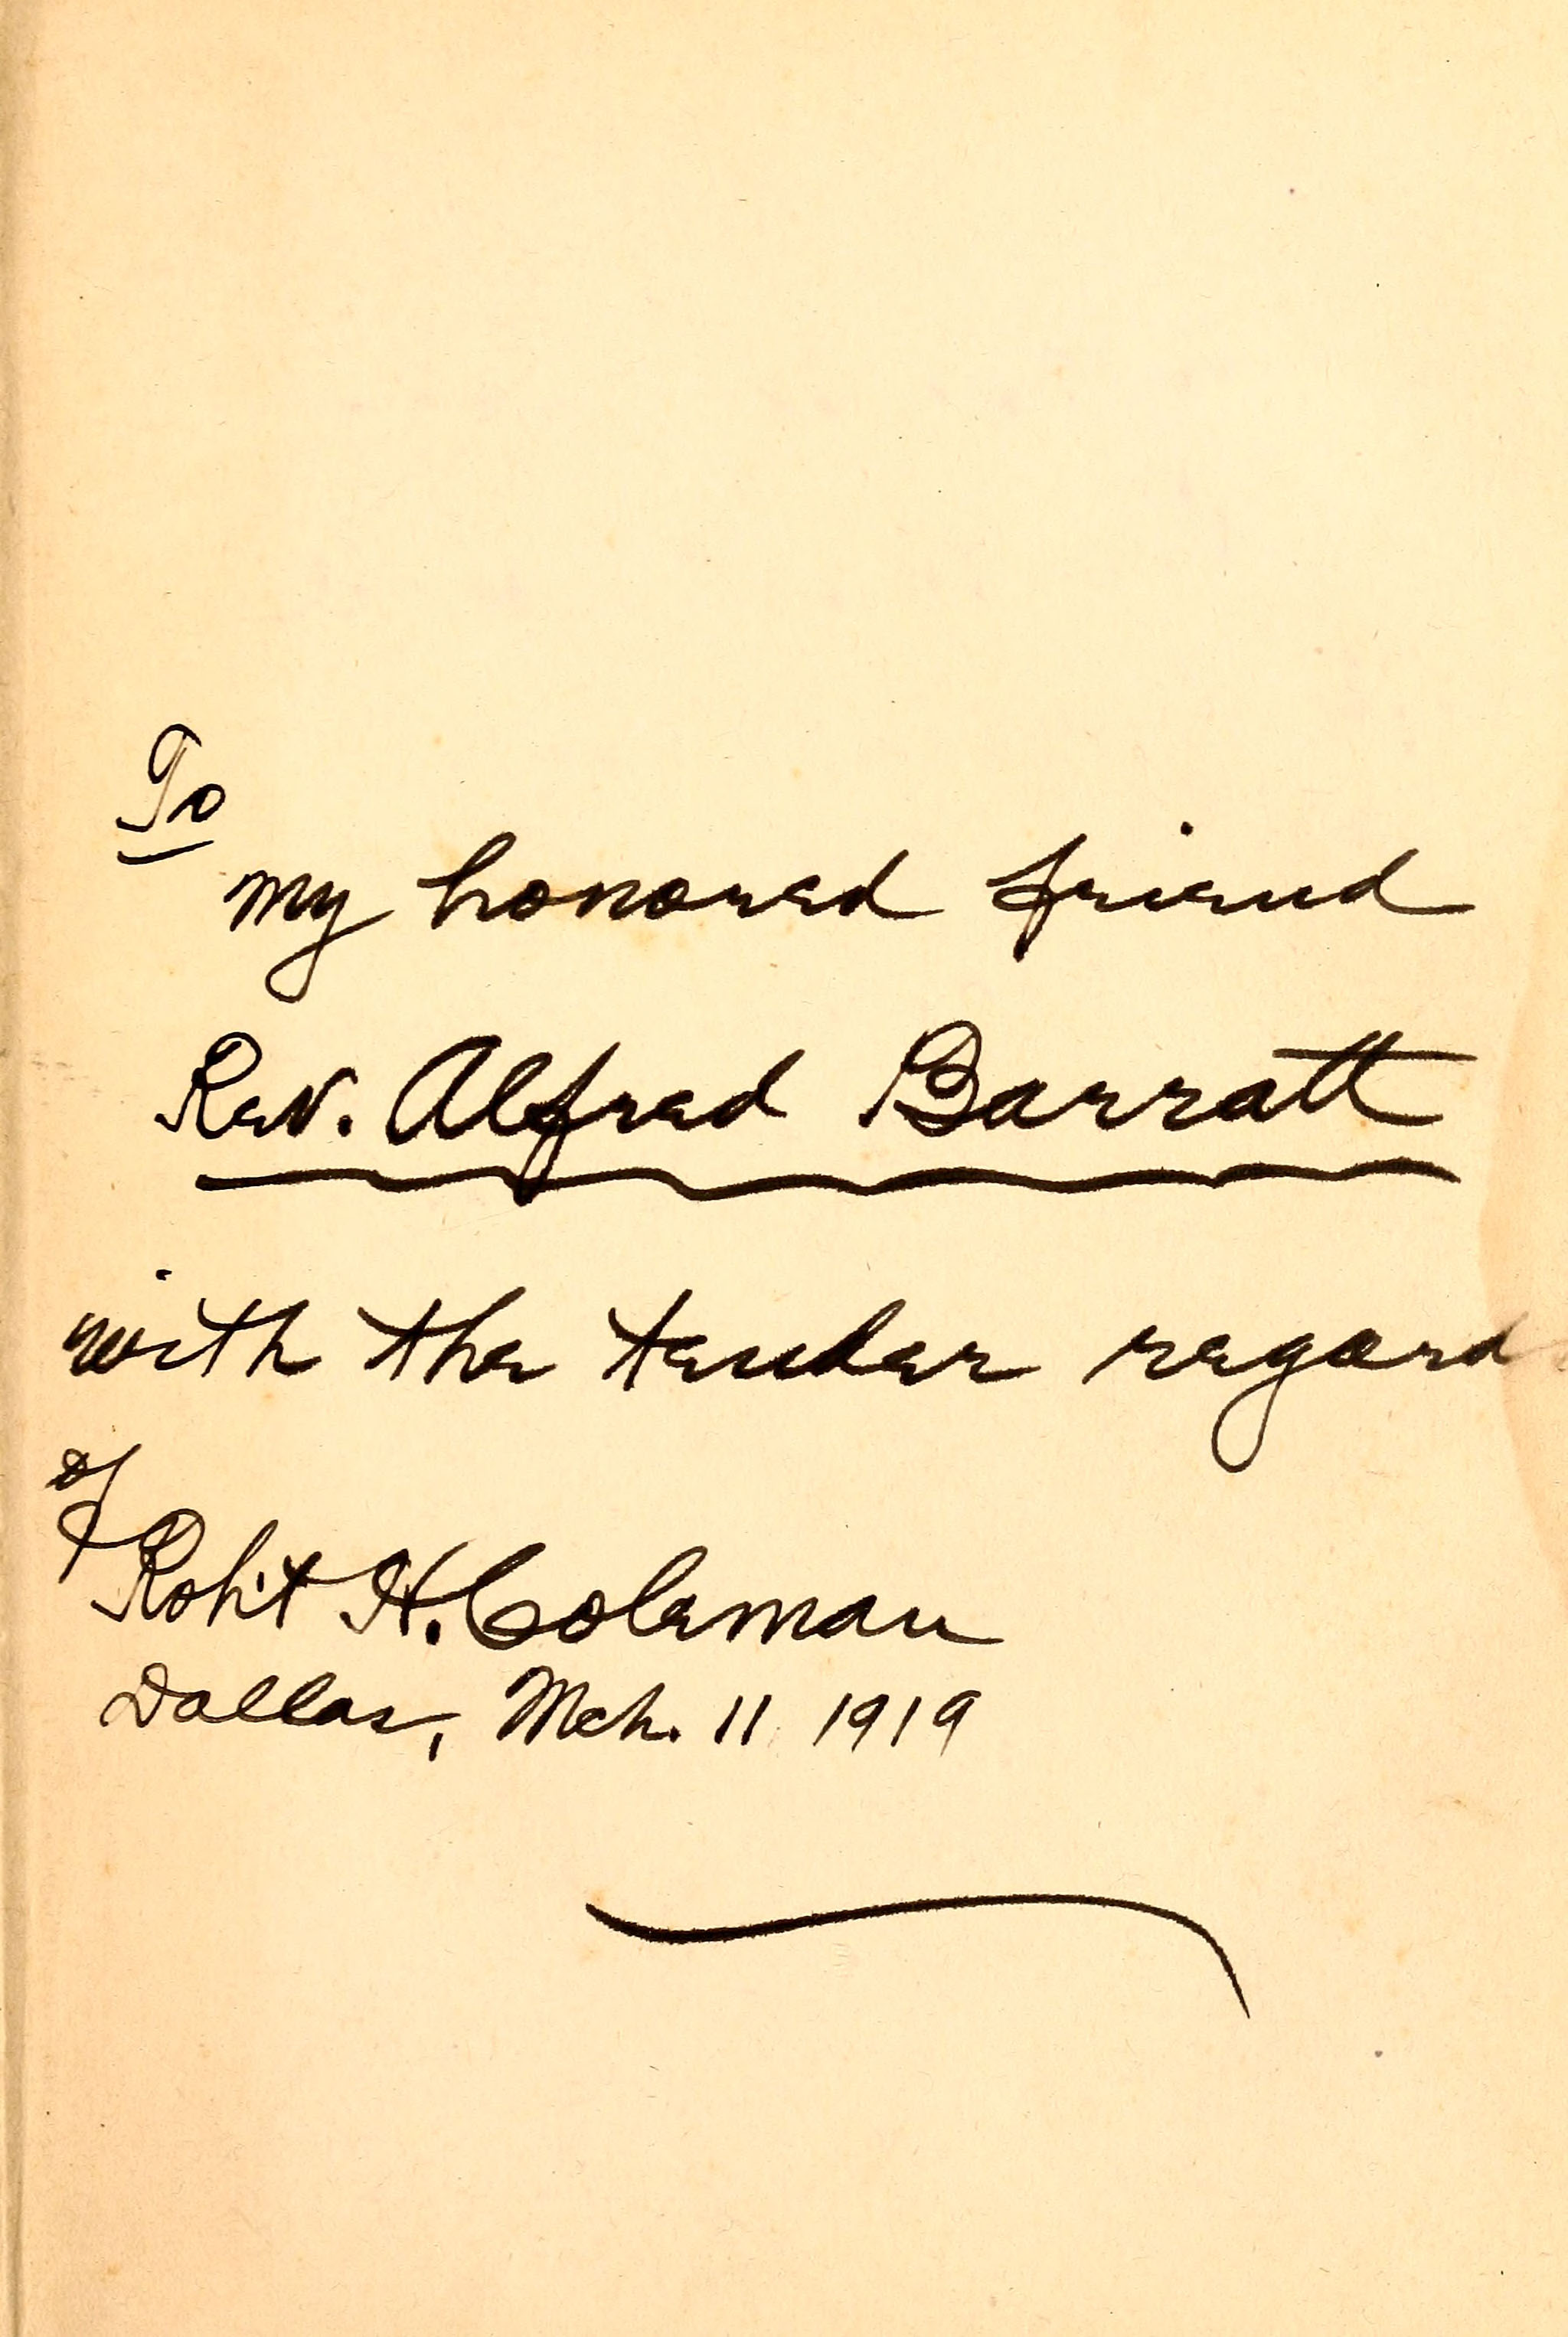 To
my honored friend
Rev. Alfred Barratt
with the tender regard
of
Rob't H. Coleman
Dallas, Mch. 11 1919